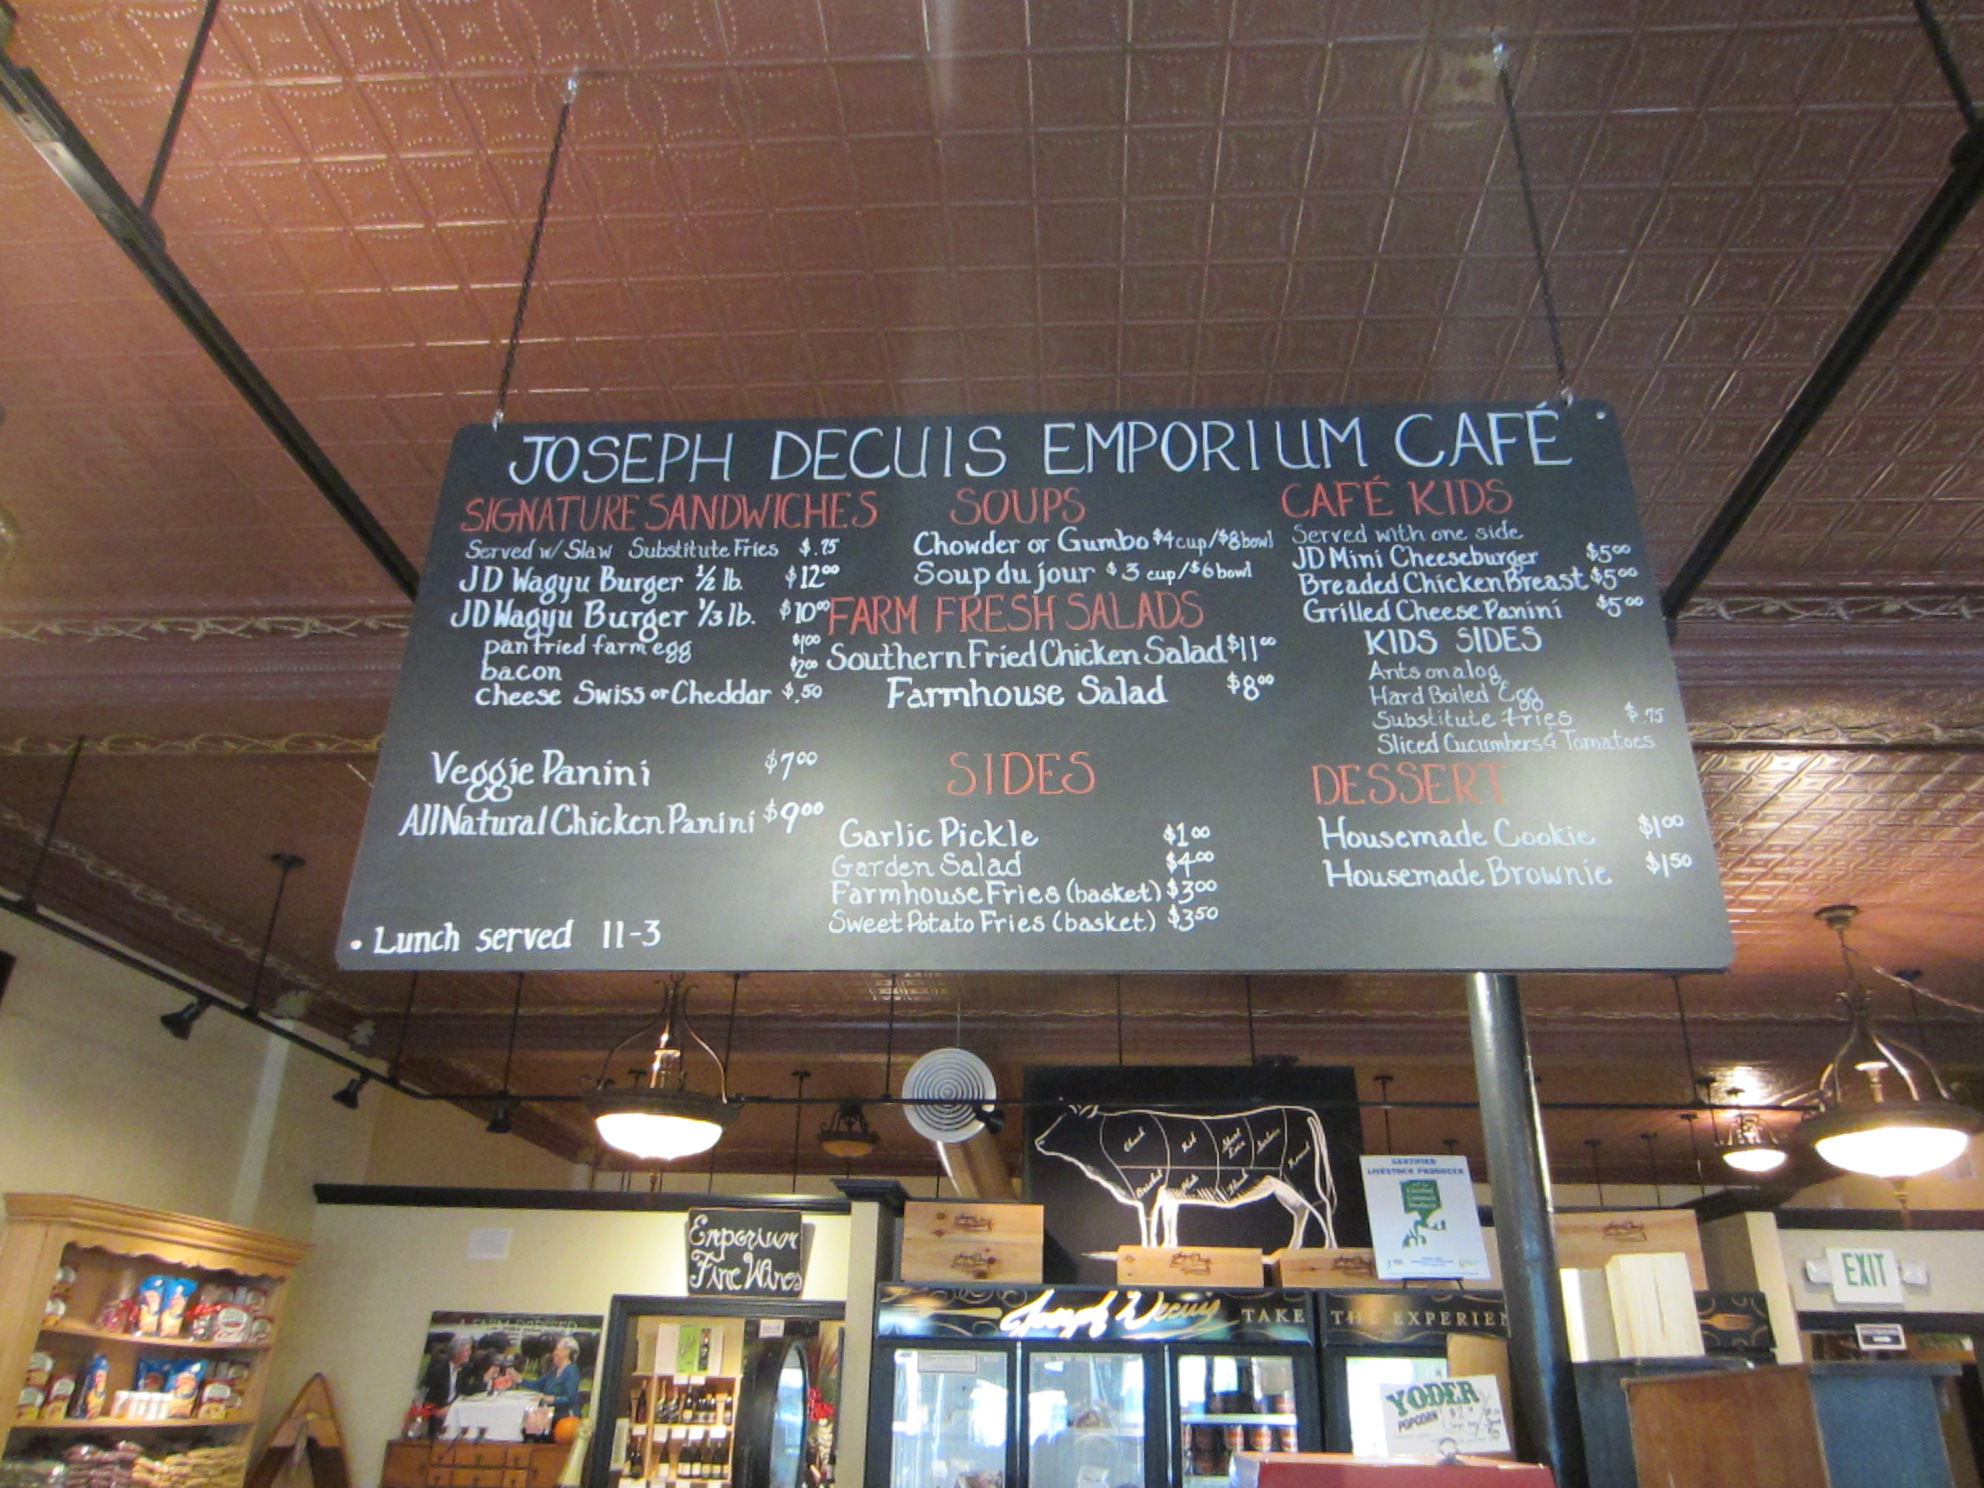 JOSEPH DECUIS EMPORIUM CAFÉ
SIGNATURE SANDWICHES
Served w/ Slaw Substitute Fries $.75
JD Wagyu Burger ½ lb. $12.00
JD Wagyu Burger ⅓ lb. $10.00
pan fried farm egg $1.00
bacon $2.00
cheese Swiss or Cheddar $.50
Veggie Panini $7.00
All Natural Chicken Panini $9.00
• Lunch served 11-3
SOUPS
Chowder or Gumbo $4 cup/$8 bowl
Soup du jour $3 cup/$6 bowl
FARM FRESH SALADS
Southern Fried Chicken Salad $11.00
Farmhouse Salad $8.00
SIDES
Garlic Pickle $1.00
Garden Salad $4.00
Farmhouse Fries (basket) $3.00
Sweet Potato Fries (basket) $3.50
CAFÉ KIDS
Served with one side
JD Mini Cheeseburger $5.00
Breaded Chicken Breast $5.00
Grilled Cheese Panini $5.00
KIDS SIDES
Ants on a log
Hard Boiled Egg
Substitute Fries $.75
Sliced Cucumbers & Tomatoes
DESSERT
Housemade Cookie $1.00
Housemade Brownie $1.50
Chuck
Rib
Short Loin
Sirloin
Round
Brisket
Plate
Flank
CERTIFIED
LIVESTOCK PRODUCER
Emporium
Fine Wines
EXIT
Joseph Decuis TAKE THE EXPERIEN
YODER
POPCORN